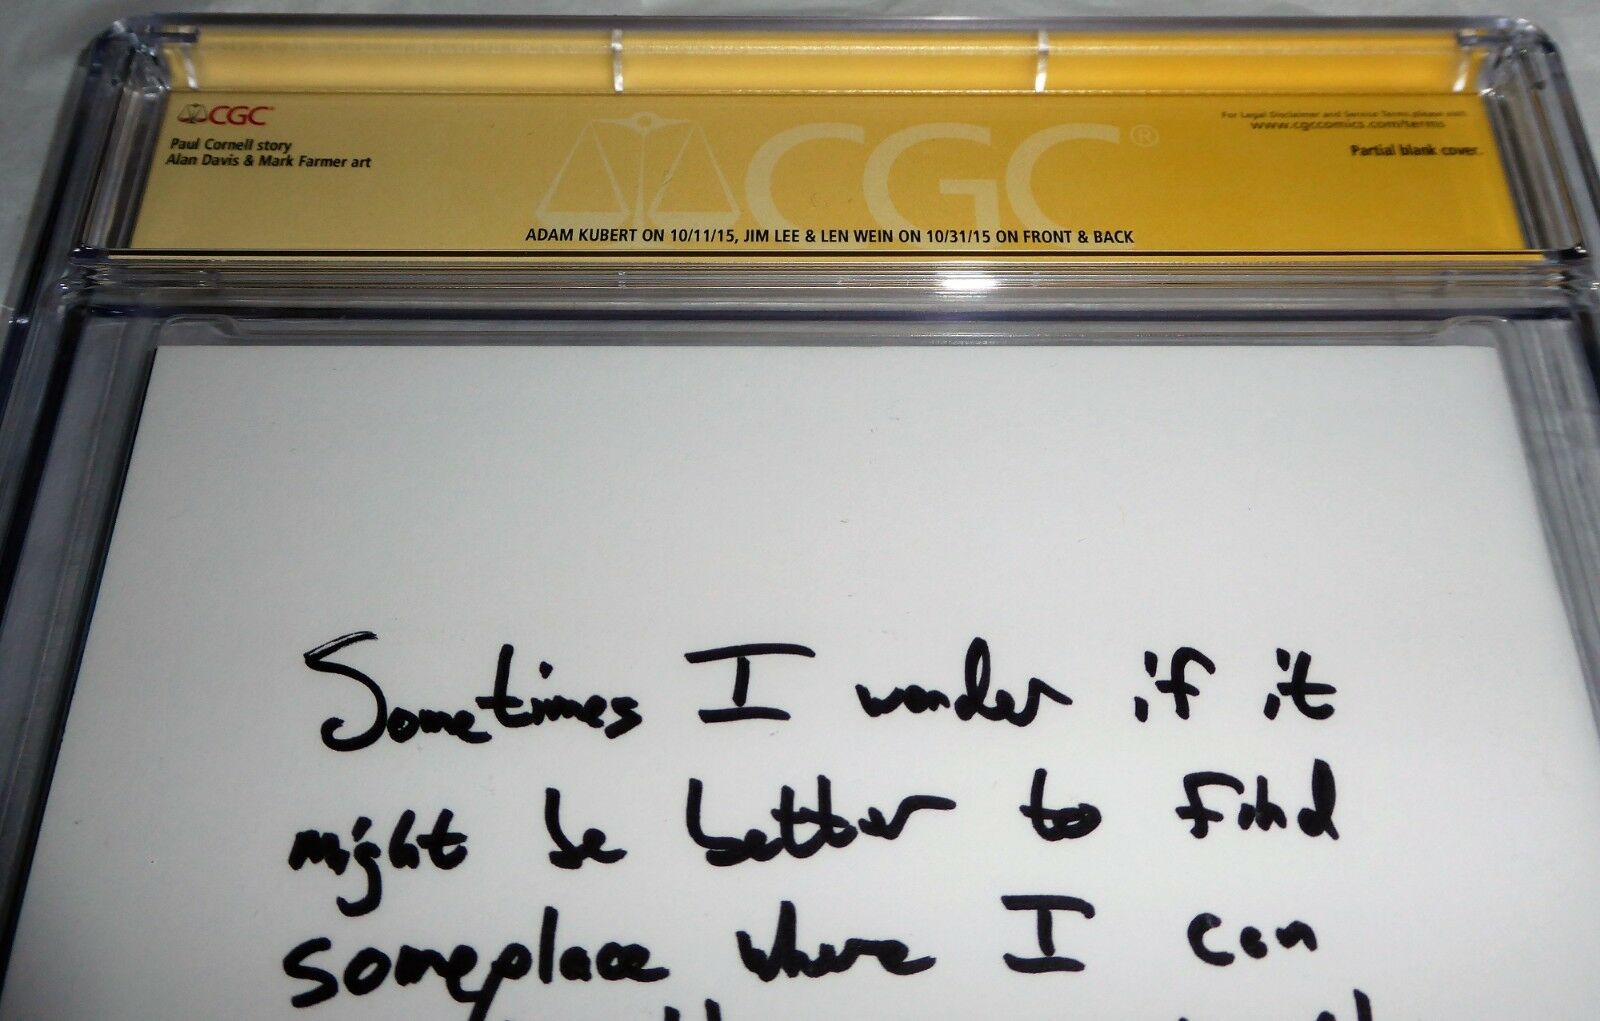 CGC
Paul Cornell story
Alan Davis & Mark Farmer art
CGC®
For Legal Disclaimer and Service Terms please visit
www.cgccomics.com/terms
Partial blank cover.
ADAM KUBERT ON 10/11/15, JIM LEE & LEN WEIN ON 10/31/15 ON FRONT & BACK
Sometimes I wonder if it
might be better to find
someplace where I can